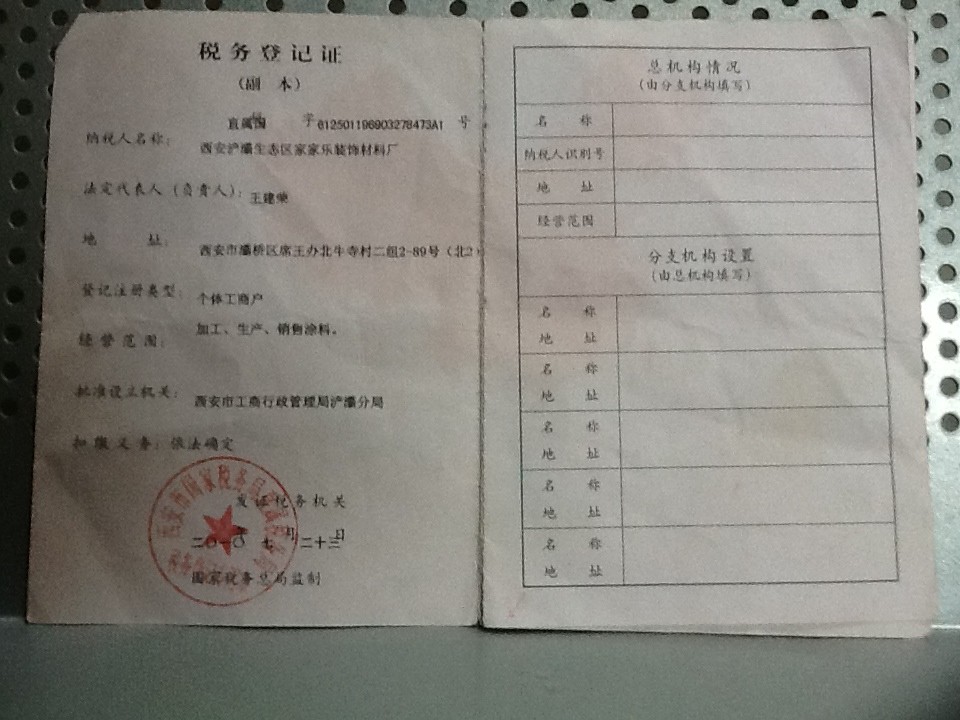 税务登记证
(副 本)
直属国 字 612501196903278473A1 号
纳税人名称: 西安浐灞生态区家家乐装饰材料厂
法定代表人(负责人): 王建荣
地 址: 西安市灞桥区席王办北牛寺村二组2-89号(北2)
登记注册类型: 个体工商户
经营范围: 加工、生产、销售涂料。
批准设立机关: 西安市工商行政管理局浐灞分局
扣缴义务: 依法确定
发证税务机关
二〇一〇 七 月 二十三 日
国家税务总局监制
总机构情况
(由分支机构填写)
名 称
纳税人识别号
地 址
经营范围
分支机构设置
(由总机构填写)
名 称
地 址
名 称
地 址
名 称
地 址
名 称
地 址
名 称
地 址